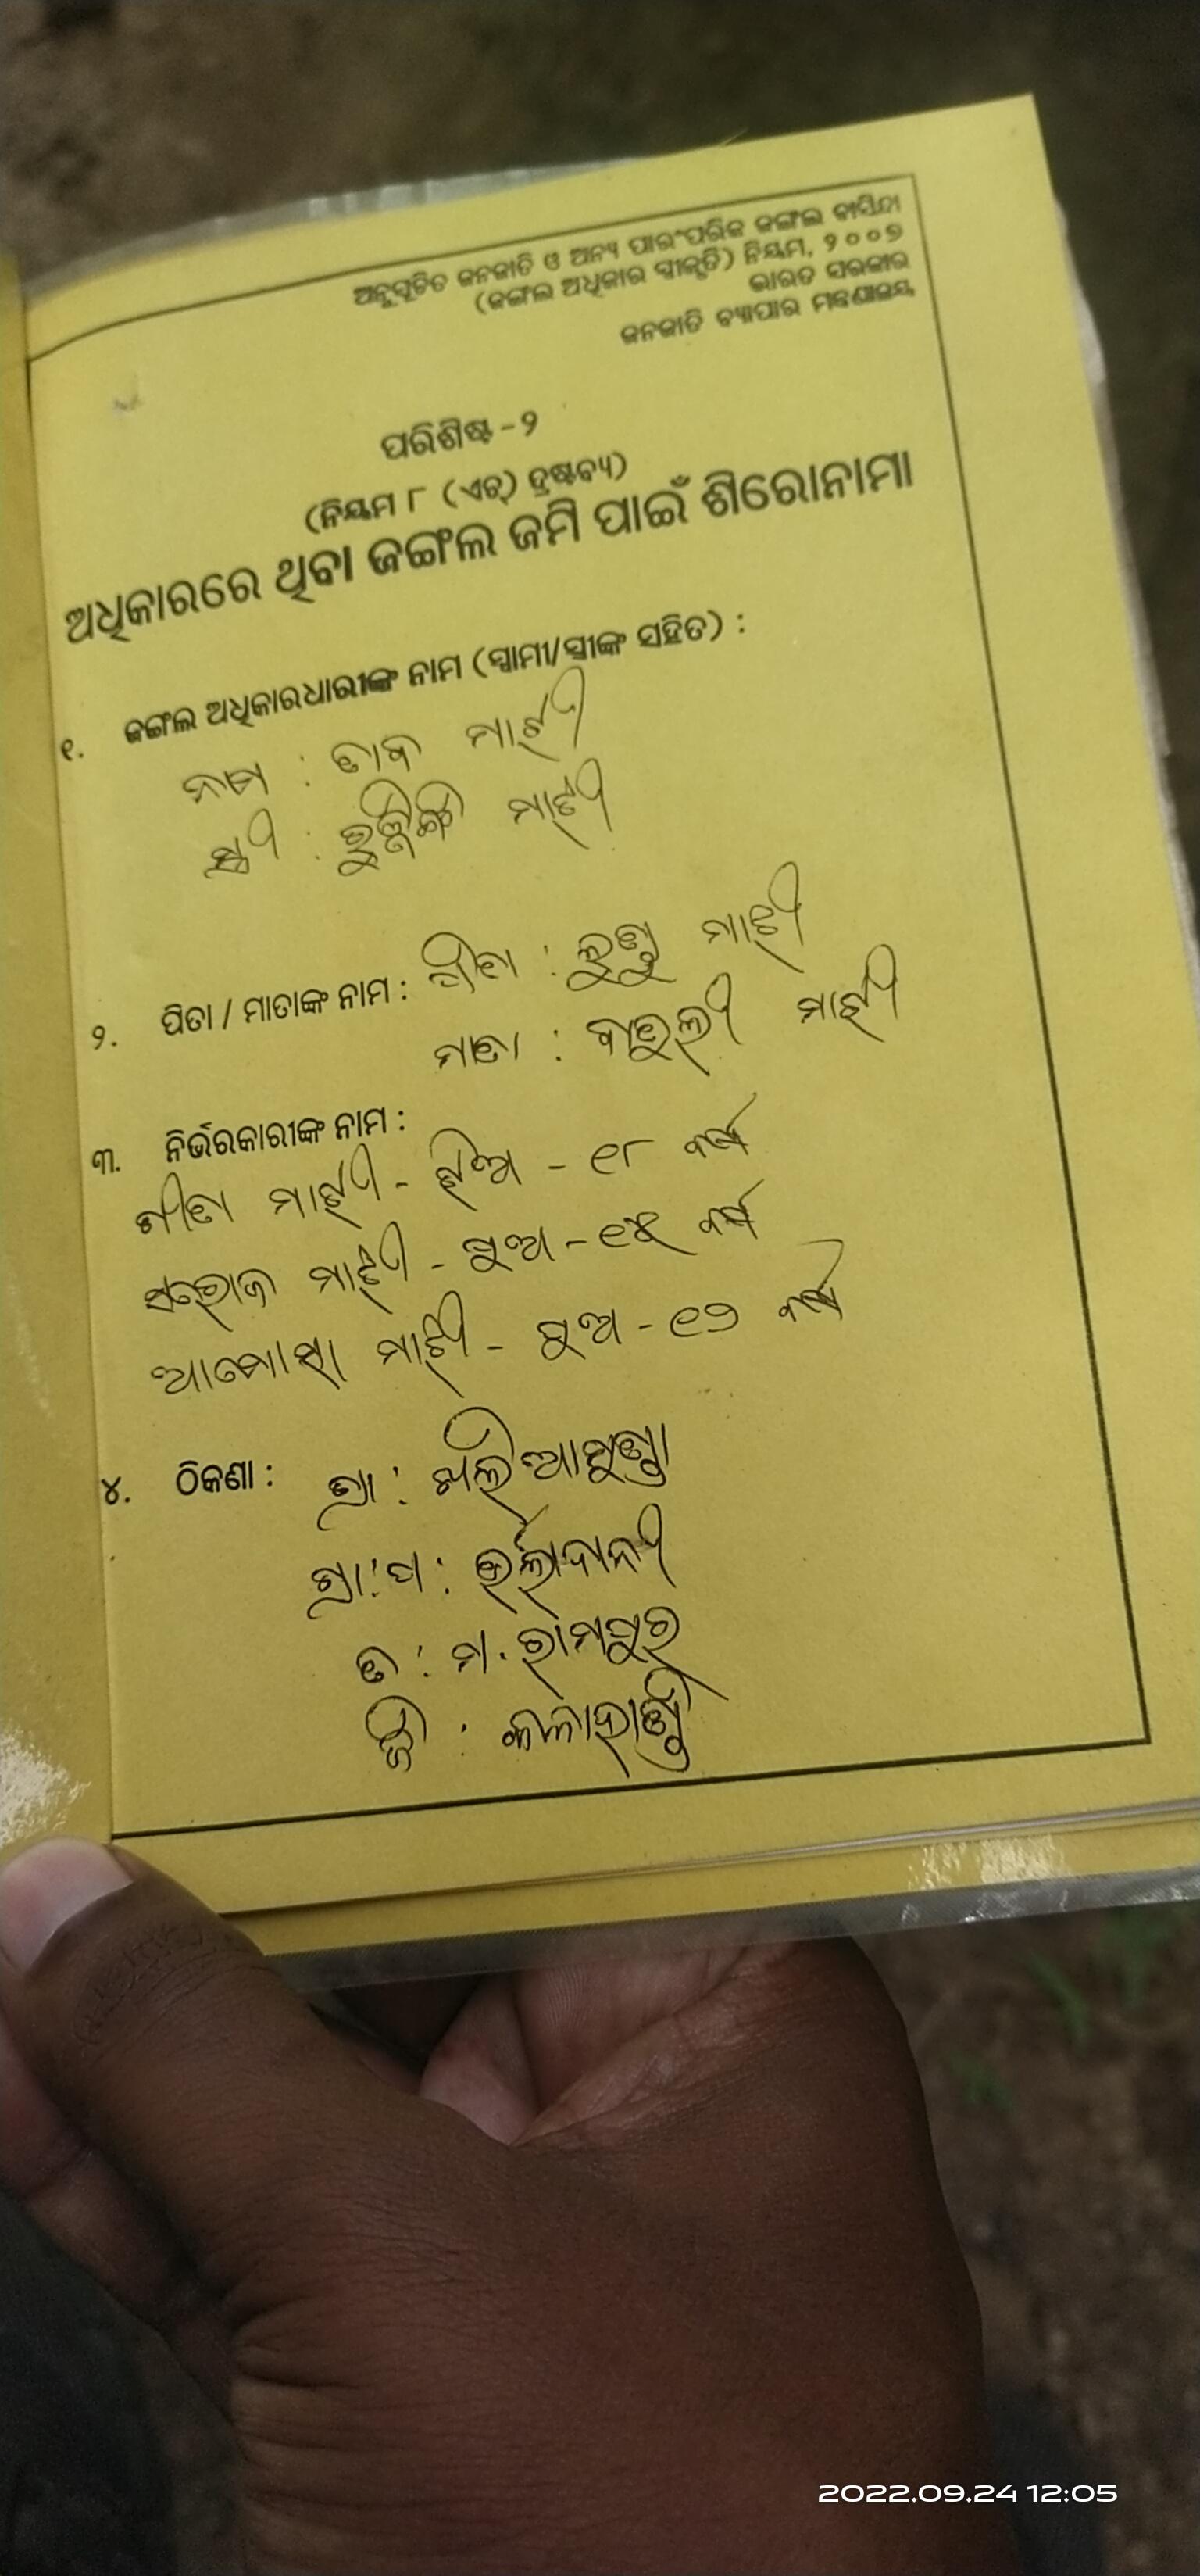 ଅନୁସୂଚିତ ଜନଜାତି ଓ ଅନ୍ୟ ପାରଂପରିକ ଜଙ୍ଗଲ ବାସିନ୍ଦା
(ଜଙ୍ଗଲ ଅଧିକାର ସ୍ୱୀକୃତି) ନିୟମ, ୨୦୦୭
ଭାରତ ସରକାର
ଜନଜାତି ବ୍ୟାପାର ମନ୍ତ୍ରଣାଳୟ
ପରିଶିଷ୍ଟ - ୨
(ନିୟମ ୮ (ଏଚ୍) ଦ୍ରଷ୍ଟବ୍ୟ)
ଅଧିକାରରେ ଥିବା ଜଙ୍ଗଲ ଜମି ପାଇଁ ଶିରୋନାମା
୧. ଜଙ୍ଗଲ ଅଧିକାରଧାରୀଙ୍କ ନାମ (ସ୍ୱାମୀ/ସ୍ତ୍ରୀଙ୍କ ସହିତ) :
ନାମ : ମାଝୀ
ସ୍ତ୍ରୀ : ମାଝୀ
୨. ପିତା / ମାତାଙ୍କ ନାମ : ପିତା : ମାଝୀ
ମାତା : ମାଝୀ
୩. ନିର୍ଭରକାରୀଙ୍କ ନାମ :
ମାଝୀ - ଝିଅ - ୧୮ ବର୍ଷ
ସରୋଜ ମାଝୀ - ପୁଅ - ୧୫ ବର୍ଷ
ମାଝୀ - ପୁଅ - ୧୨ ବର୍ଷ
୪. ଠିକଣା : ଗ୍ରା :
ଗ୍ରା : ପ : ଉର୍ଲାଦାନୀ
ତ : ମ. ରାମପୁର
ଜି : କଳାହାଣ୍ଡି
2022.09.24 12:05